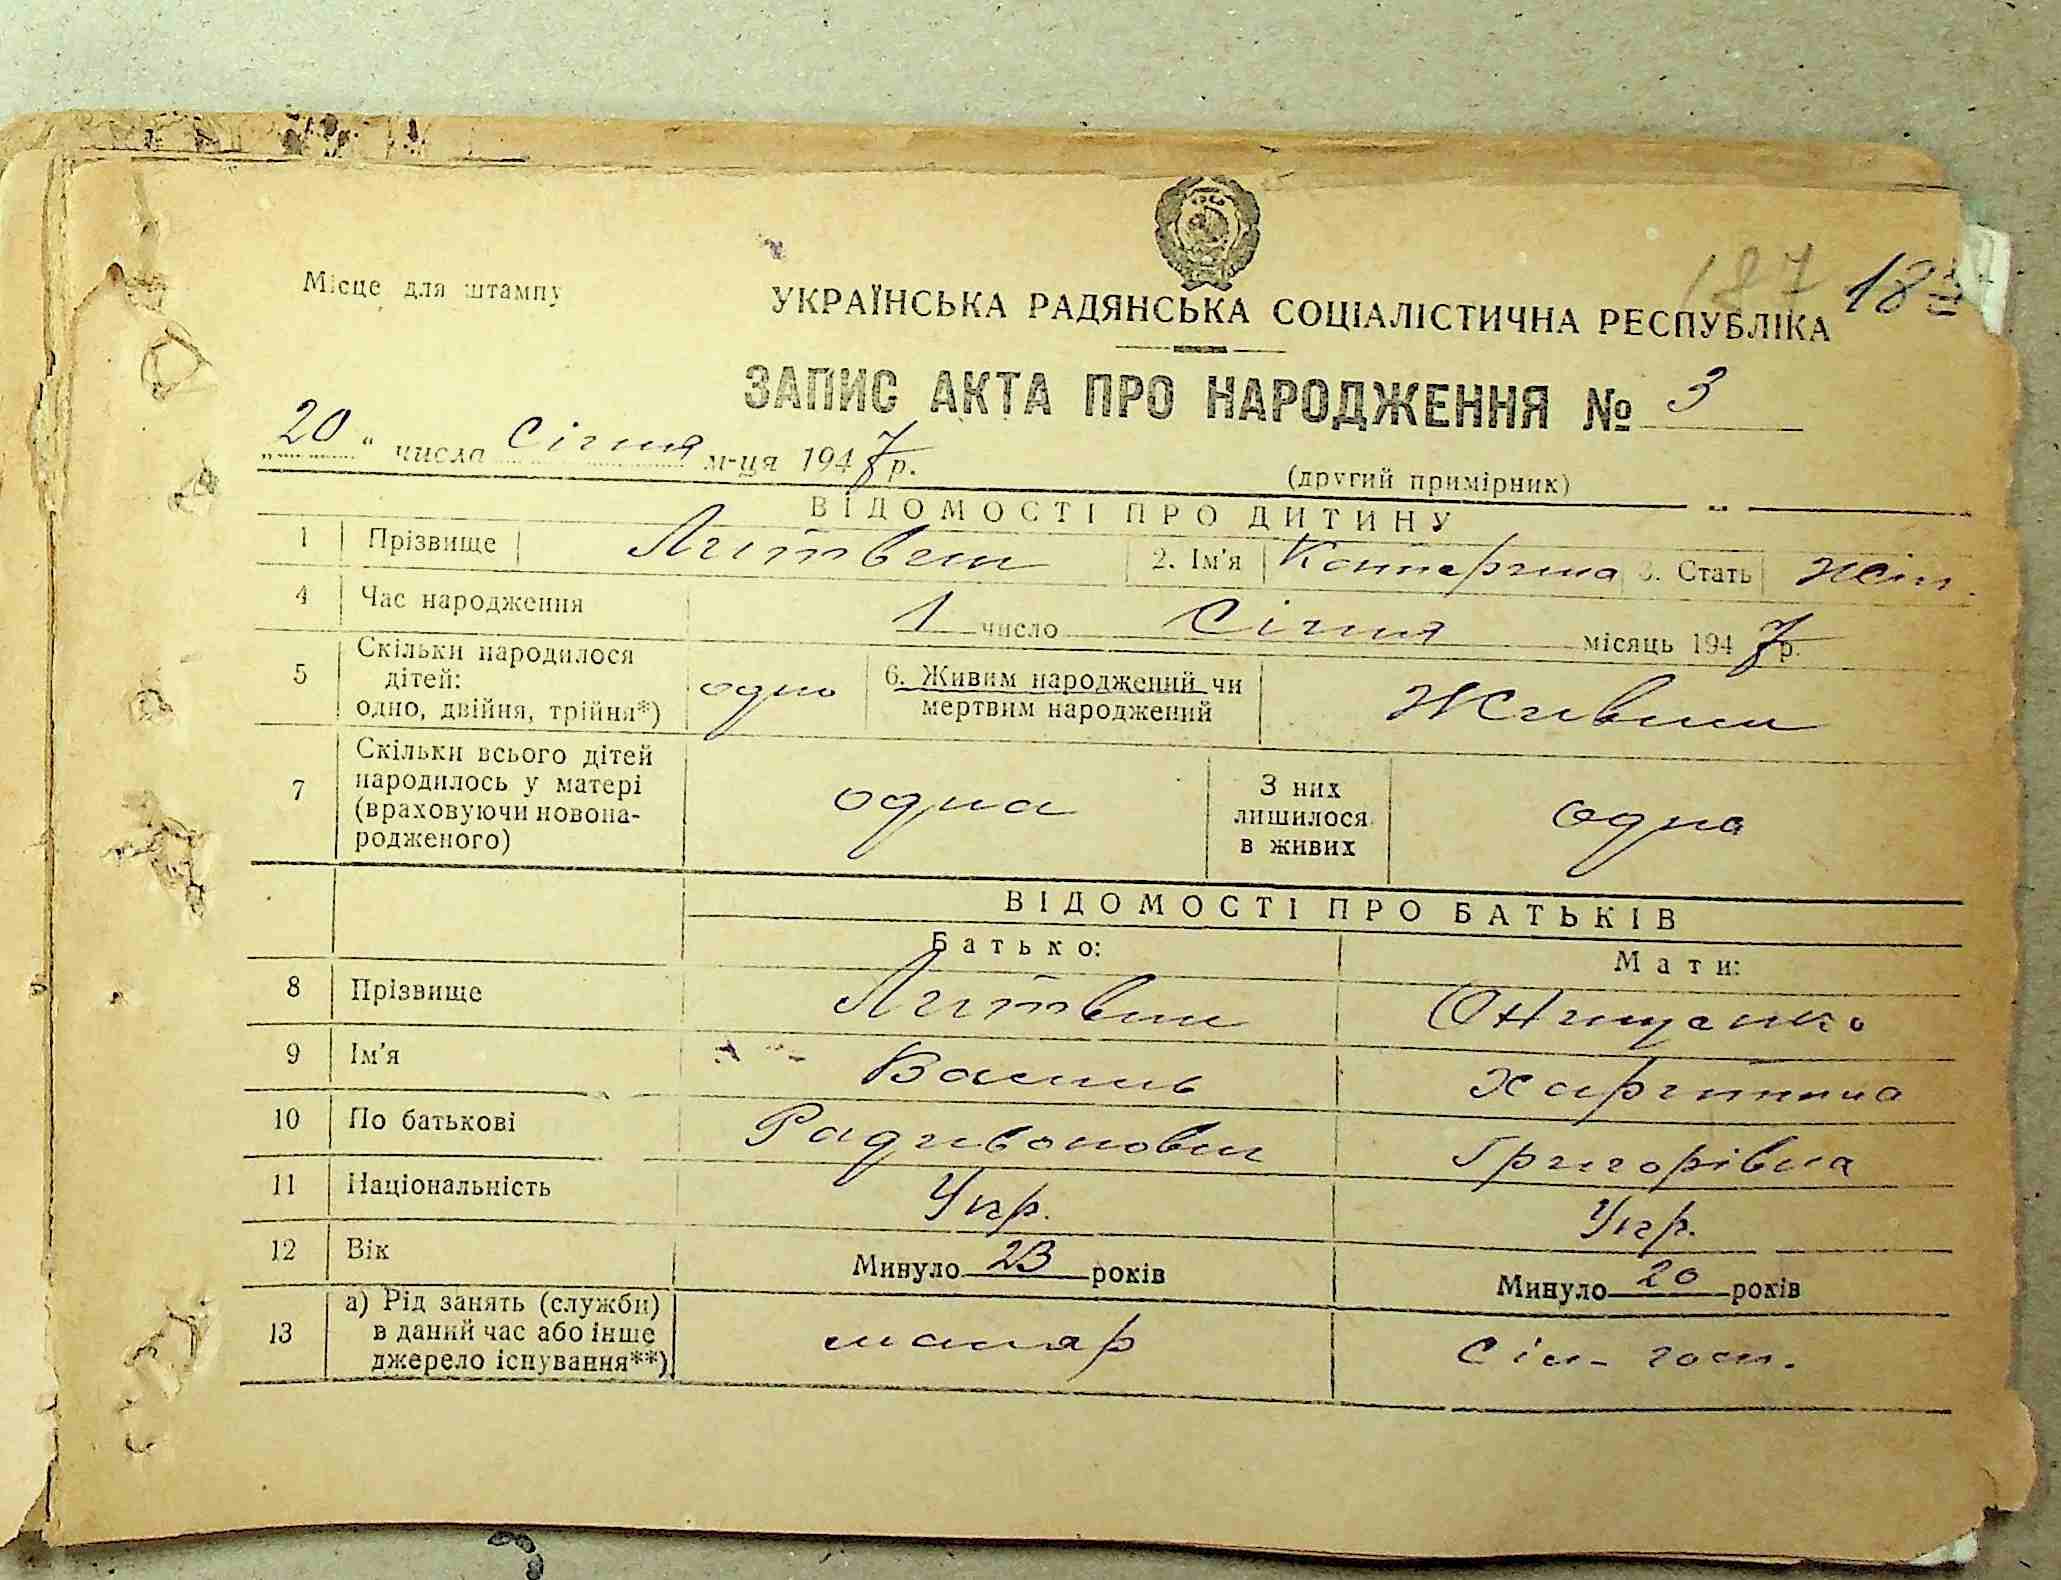 187 187
Місце для штампу
УКРАЇНСЬКА РАДЯНСЬКА СОЦІАЛІСТИЧНА РЕСПУБЛІКА
ЗАПИС АКТА ПРО НАРОДЖЕННЯ № 3
„20“ числа січня м-ця 1947 р.
(другий примірник)
ВІДОМОСТІ ПРО ДИТИНУ
1 Прізвище Литвин 2. Ім'я Катерина 3. Стать жін.
4 Час народження 1 число січня місяць 1947 р.
5 Скільки народилося дітей: одно, двійня, трійня*) одно 6. Живим народжений чи мертвим народжений Живим
7 Скільки всього дітей народилось у матері (враховуючи новонародженого) одна З них лишилося в живих одна
ВІДОМОСТІ ПРО БАТЬКІВ
Батько: Мати:
8 Прізвище Литвин Онищенко
9 Ім'я Василь Харитина
10 По батькові Радивонович Григорівна
11 Національність Укр. Укр.
12 Вік Минуло 23 років Минуло 20 років
13 а) Рід занять (служби) в даний час або інше джерело існування**) маляр сіл-госп.